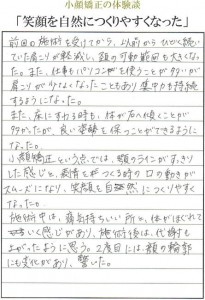 小顔矯正の体験談
「笑顔を自然につくりやすくなった」
前回の施術を受けてから、以前からひどく続い
ていた肩こりが軽減し、頭の可動範囲も大きくな
った。また、仕事もパソコンを使うことが多いが
肩こりが少なくなったこともあり集中力も持続
するようになった。
また、床にすわる時も、体が右へ傾くことが
多かったが、良い姿勢を保つことができるように
なった。
小顔矯正という点では、顎のラインがすっきり
した感じと、表情を作る時の口の動きが
スムーズになり、笑顔を自然につくりやすく
なった。
施術中は、痛気持ちいい所と、体がほぐれて
いく感じがあり、施術後は、代謝も
よがったように思う。2度目には、顔の輪郭
にも変化があり、驚いた。